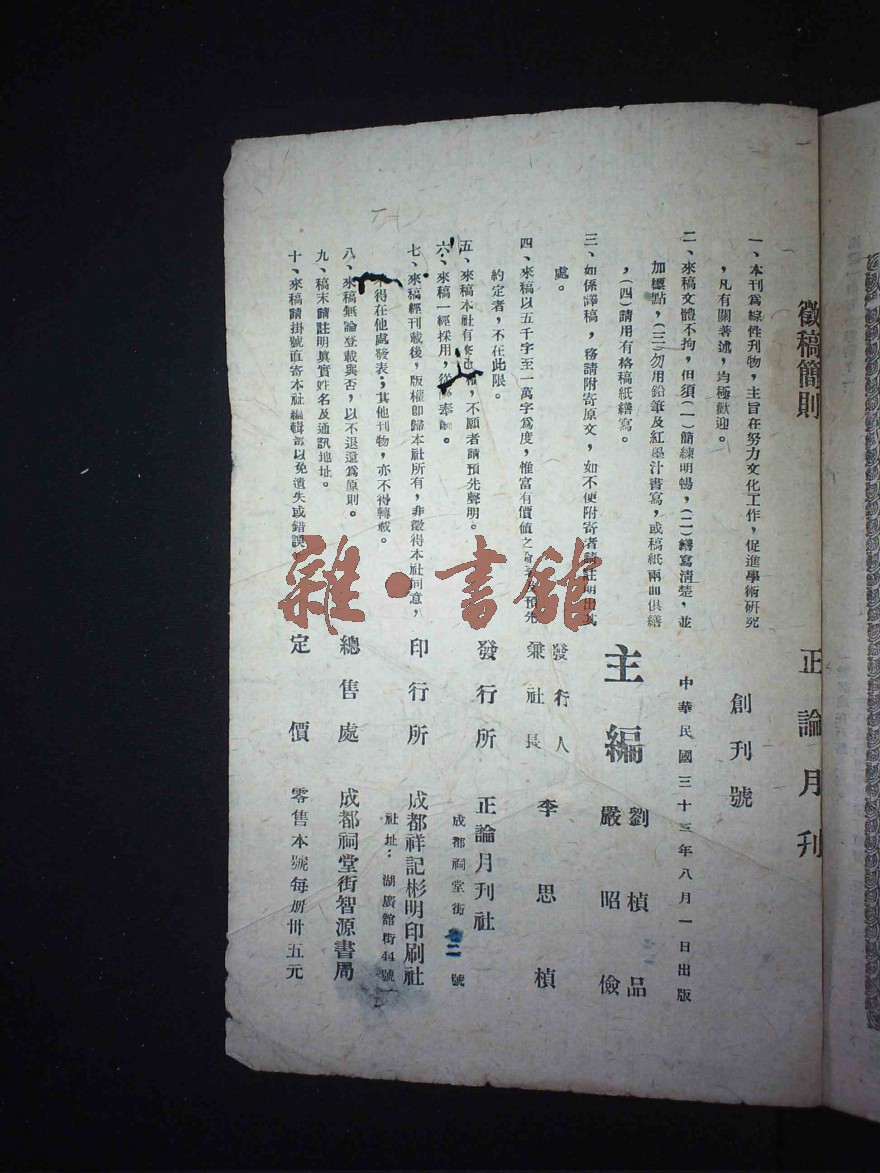 徵稿簡則
一、本刊爲綜性刊物，主旨在努力文化工作，促進學術研究
，凡有關著述，均極歡迎。
二、來稿文體不拘，但須（一）簡練明暢，（二）繕寫清楚，並
加標點，（三）勿用鉛筆及紅墨汁書寫，或稿紙兩面俱繕
，（四）請用有格稿紙繕寫。
三、如係譯稿，務請附寄原文，如不便附寄者請註明出其
處。
四、來稿以五千字至一萬字爲度，惟富有價值之預先
約定者，不在此限。
五、來稿本社有，不願者請預先聲明。
六、來稿一經採用，奉酬。
七、來稿經刊載後，版權卽歸本社所有，非徵得本社同意，
不得在他處發表；其他刊物，亦不得轉載。
八、來稿無論登載與否，以不退還爲原則。
九、稿末請註明眞實姓名及通訊地址。
十、來稿請掛號直寄本社編輯部以免遺失或錯誤
正論月刊
創刊號
中華民國三十三年八月一日出版
主編
劉楨品
嚴昭儉
發行人
兼社長
李思楨
發行所
正論月刊社
成都祠堂街二號
印行所
成都祥記彬明印刷社
社址：湖廣館街44號
總售處
成都祠堂街智源書局
定價
零售本號每册卅五元
雜·書館